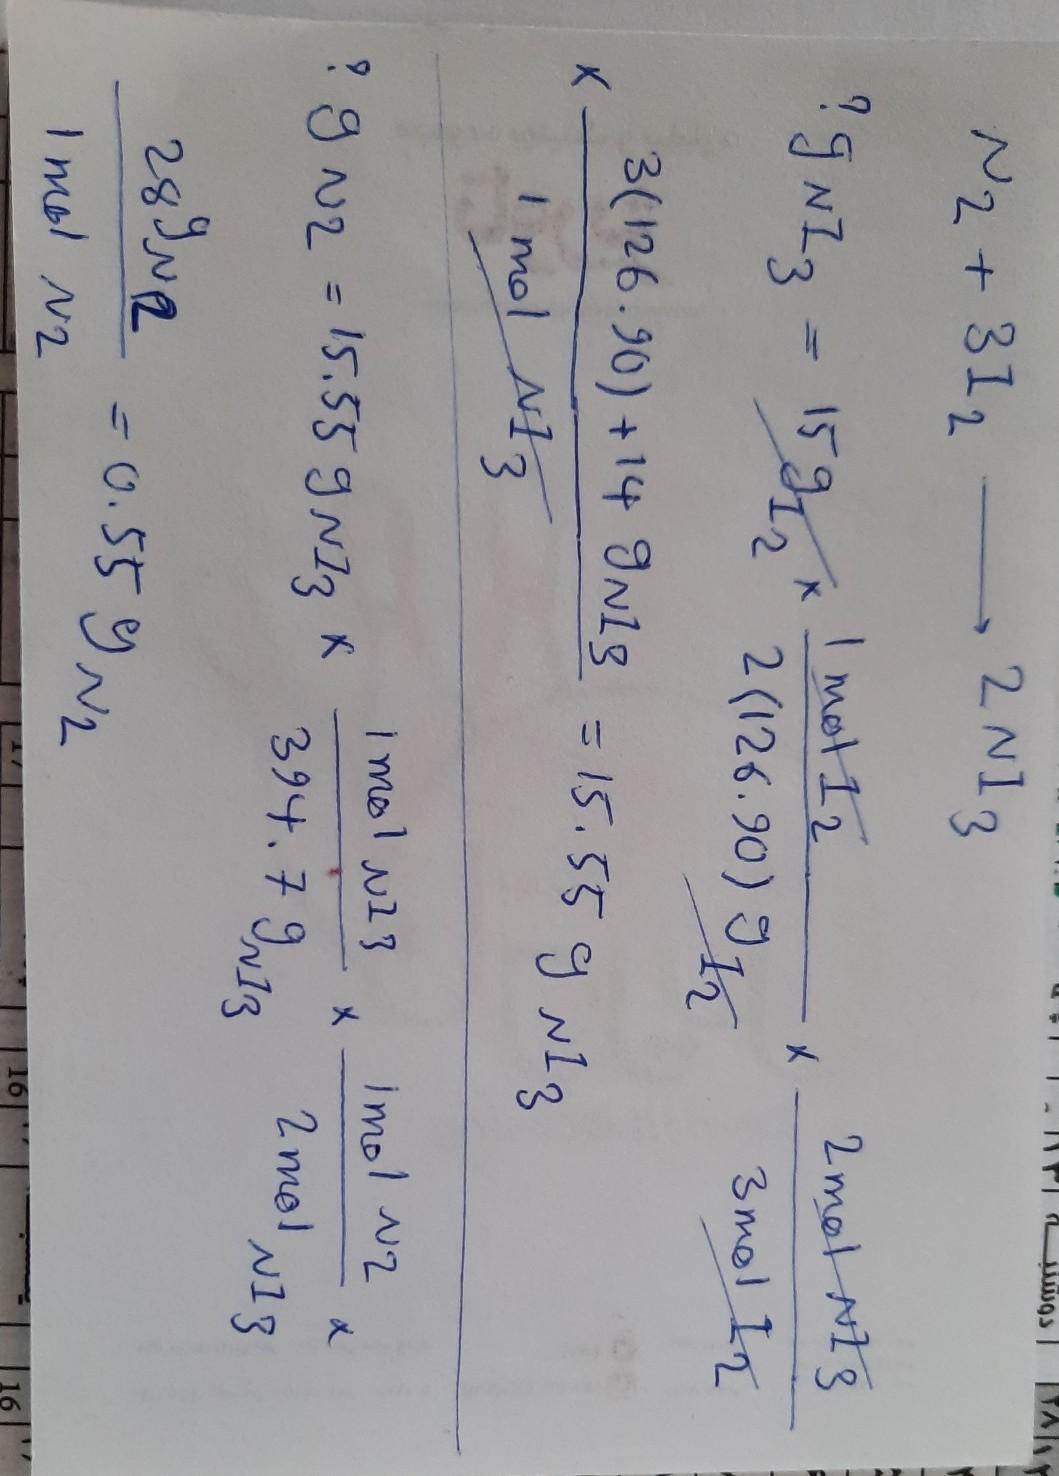 N2 + 3I2 → 2NI3
? g NI3 = 15 g I2 × 1 mol I2 / 2(126.90) g I2 × 2 mol NI3 / 3 mol I2
× 3(126.90) + 14 g NI3 / 1 mol NI3 = 15.55 g NI3
? g N2 = 15.55 g NI3 × 1 mol NI3 / 394.7 g NI3 × 1 mol N2 / 2 mol NI3 ×
28 g N2 / 1 mol N2 = 0.55 g N2
16
16